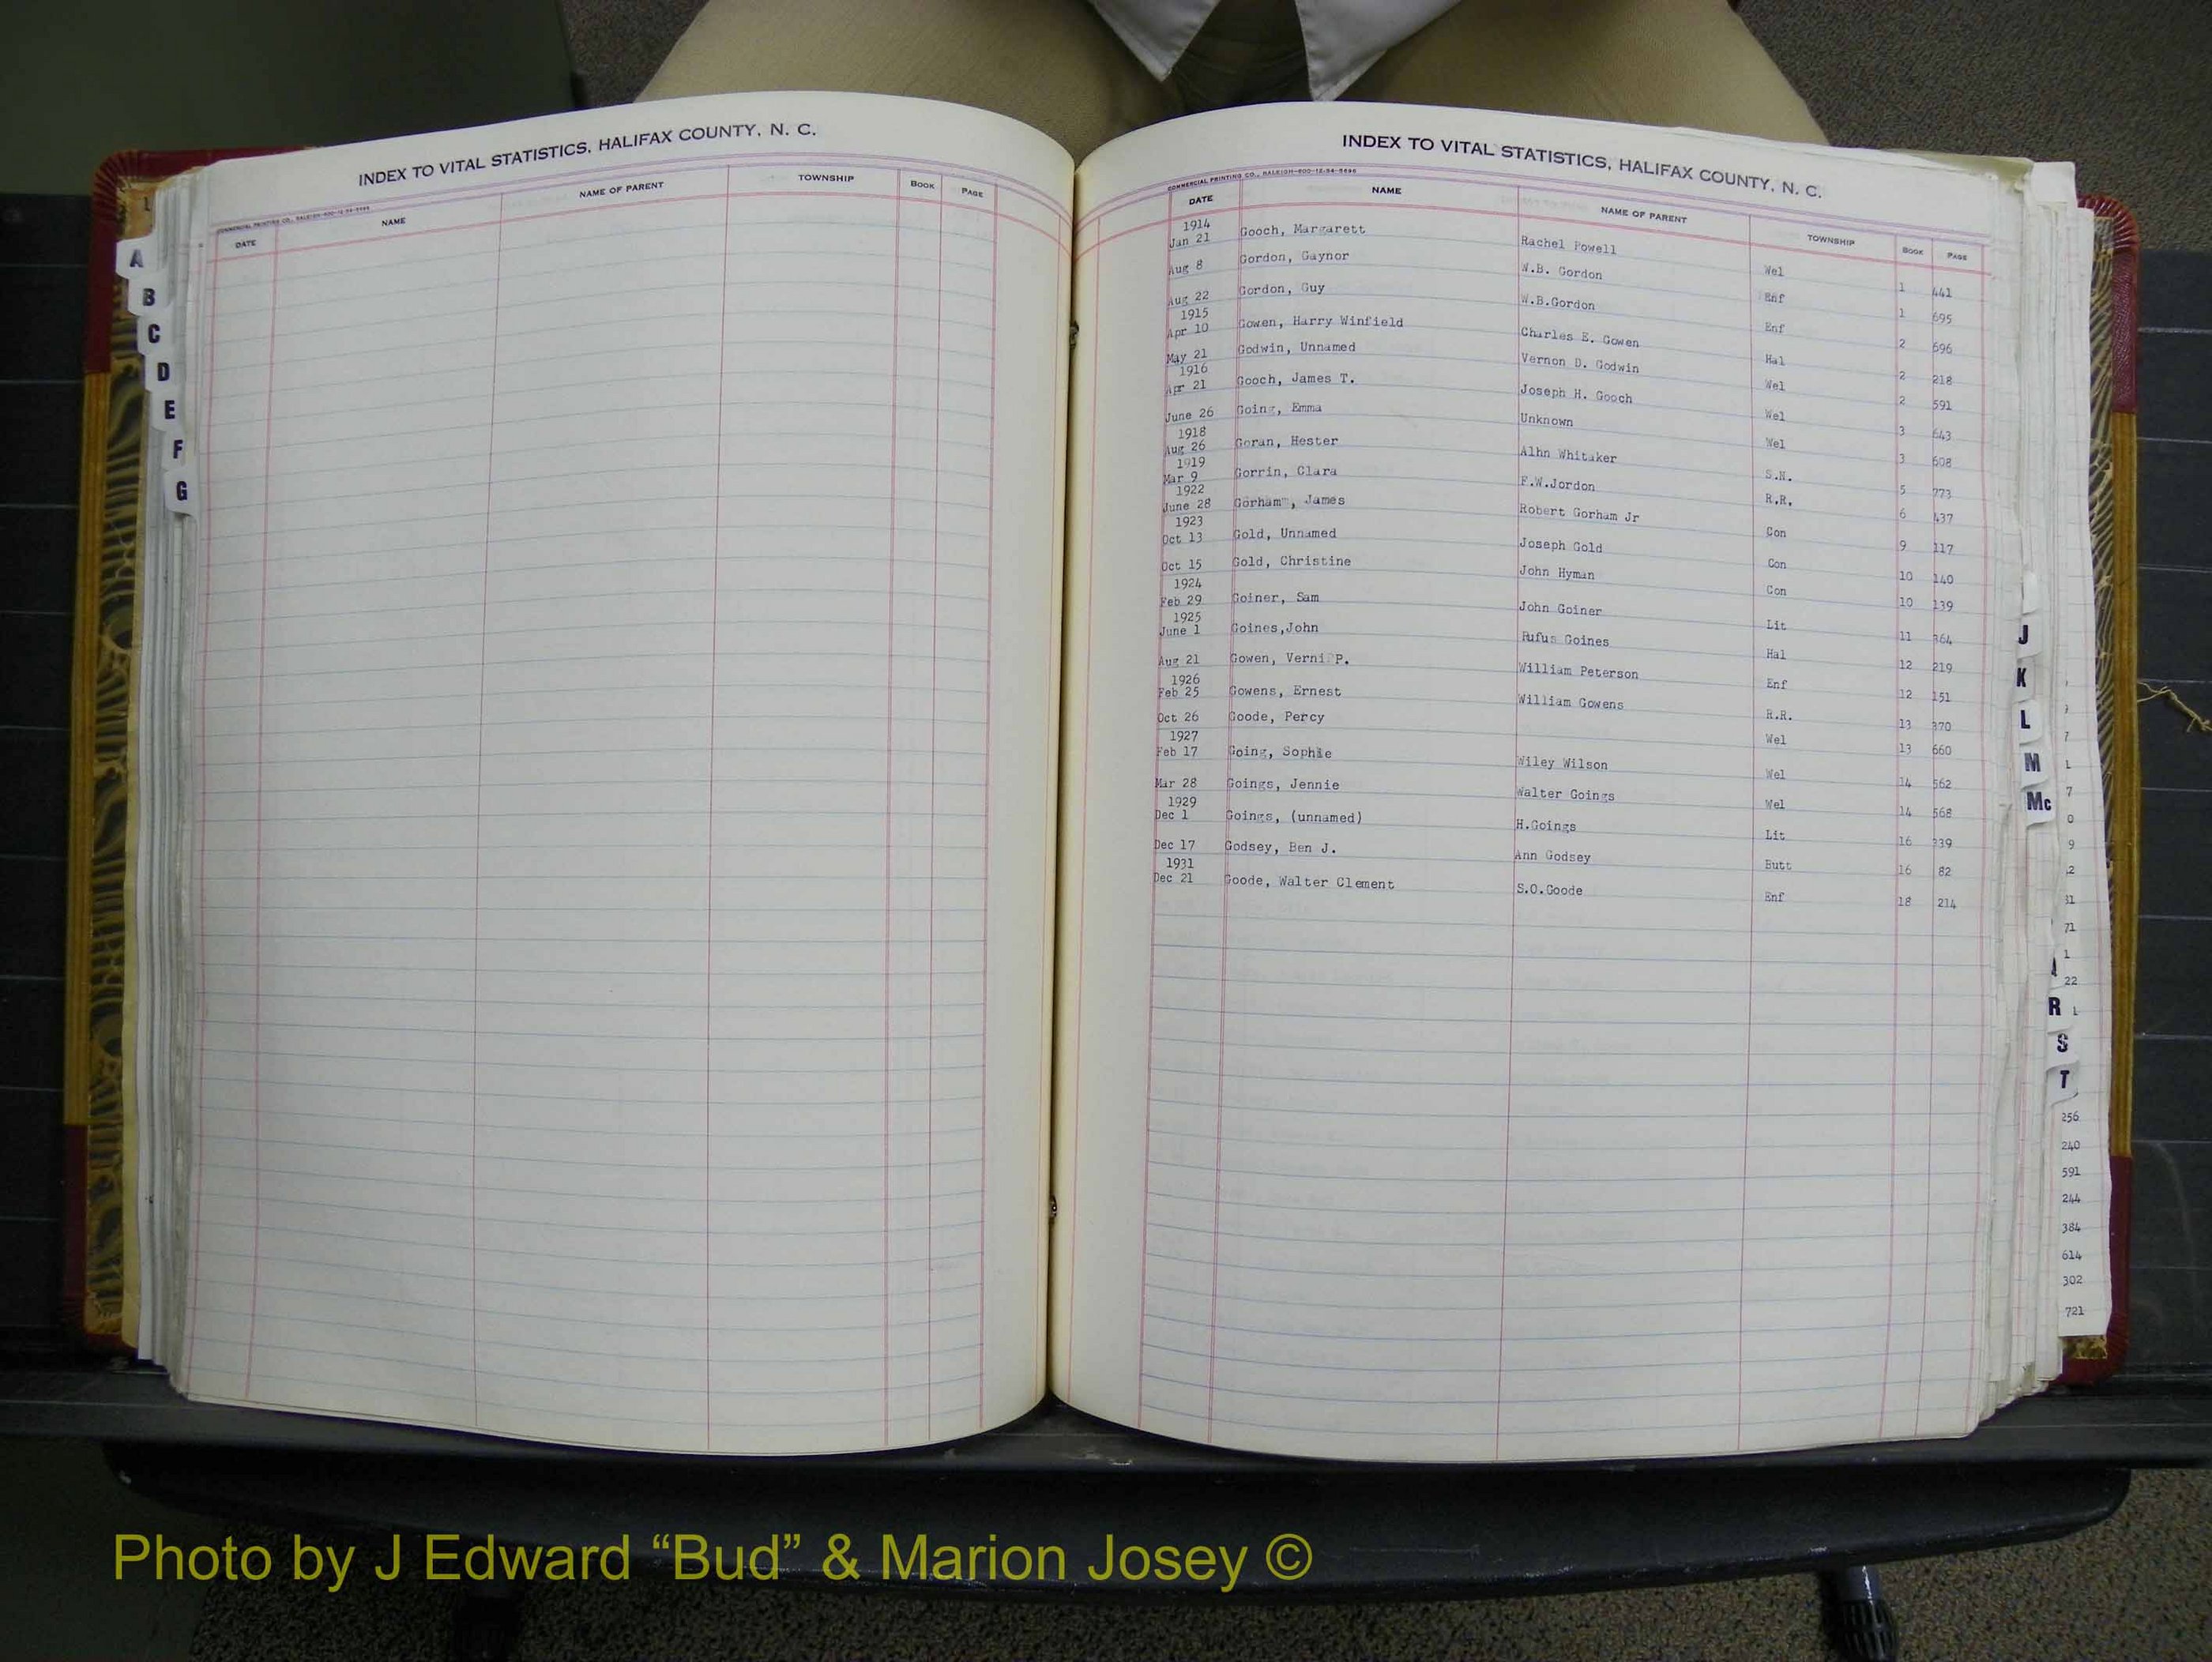 INDEX TO VITAL STATISTICS, HALIFAX COUNTY, N. C.
COMMERCIAL PRINTING CO., RALEIGH-600-12-34-5696
DATE NAME NAME OF PARENT TOWNSHIP BOOK PAGE
A
B
C
D
E
F
G
INDEX TO VITAL STATISTICS, HALIFAX COUNTY, N. C.
COMMERCIAL PRINTING CO., RALEIGH-600-12-34-5696
DATE NAME NAME OF PARENT TOWNSHIP BOOK PAGE
1914
Jan 21 Gooch, Margarett Rachel Powell Wel 1 441
Aug 8 Gordon, Gaynor W.B. Gordon Enf 1 695
Aug 22 Gordon, Guy W.B.Gordon Enf 2 696
1915
Apr 10 Gowen, Harry Winfield Charles E. Gowen Hal 2 218
May 21 Godwin, Unnamed Vernon D. Godwin Wel 2 591
1916
Apr 21 Gooch, James T. Joseph H. Gooch Wel 3 643
June 26 Going, Emma Unknown Wel 3 608
1918
Aug 26 Goran, Hester Alhn Whitaker S.N. 5 773
1919
Mar 9 Gorrin, Clara F.W.Jordon R.R. 6 437
1922
June 28 Gorham, James Robert Gorham Jr Con 9 117
1923
Oct 13 Gold, Unnamed Joseph Gold Con 10 140
Oct 15 Gold, Christine John Hyman Con 10 139
1924
Feb 29 Goiner, Sam John Goiner Lit 11 364
1925
June 1 Goines,John Rufus Goines Hal 12 219
Aug 21 Gowen, Verni P. William Peterson Enf 12 151
1926
Feb 25 Gowens, Ernest William Gowens R.R. 13 370
Oct 26 Goode, Percy Wel 13 660
1927
Feb 17 Going, Sophie Wiley Wilson Wel 14 562
Mar 28 Goings, Jennie Walter Goings Wel 14 568
1929
Dec 1 Goings, (unnamed) H.Goings Lit 16 339
Dec 17 Godsey, Ben J. Ann Godsey Butt 16 82
1931
Dec 21 Goode, Walter Clement S.O.Goode Enf 18 214
J
K
L
M
Mc
R
S
T
71
1
22
256
240
591
244
384
614
302
721
Photo by J Edward “Bud” & Marion Josey ©